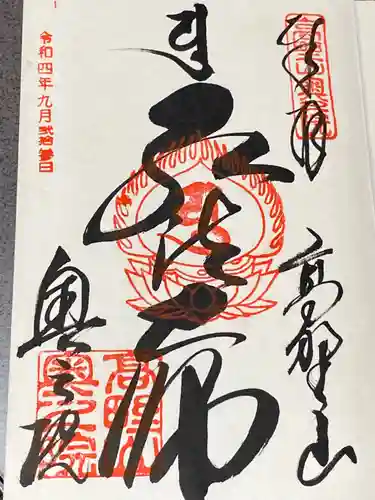 高野山奥之院
奉拝
高野山
弘法大師
高野山
奥之院
奥之院
令和四年九月弐拾参日